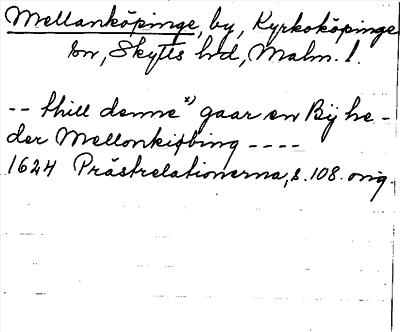 Mellanköpinge, by, Kyrkoköpinge
sn, Skytts hd, Malm. l.
-- thill denne x) gaar en Bÿ he-
der Mellonkiøbing ----
1624 Prästrelationerna, s. 108. orig.